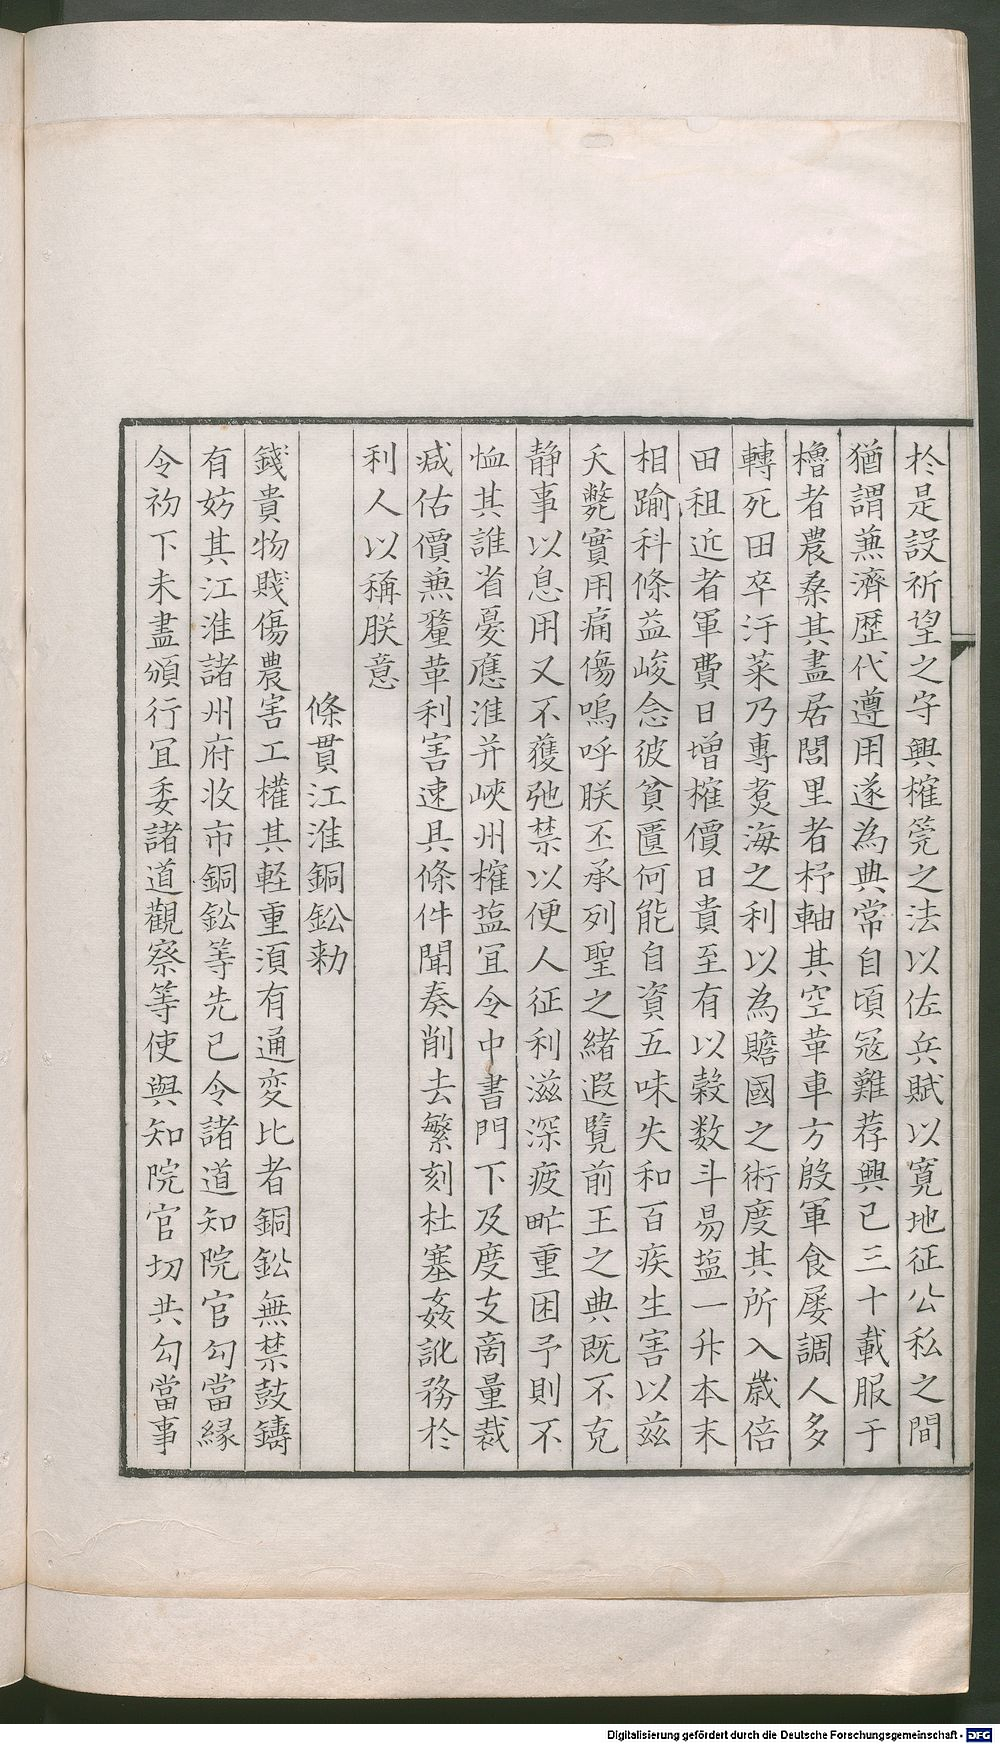 於是設祈望之守興榷筦之法以佐兵賦以寛地征公私之間
猶謂蕪濟歴代遵用遂為典常自頃冦難荐興已三十載服于
櫓者農桑其盡居閭里者杼軸其空革車方殷軍食屡調人多
轉死田卒汙萊乃專煑海之利以為贍國之術度其所入歲倍
田租近者軍費日增榷價日貴至有以穀数斗易塩一升本末
相踰科條益峻念彼貧匱何能自資五味失和百疾生害以兹
夭斃實用痛傷嗚呼朕丕承列聖之緒遐覧前王之典既不克
静事以息用又不獲弛禁以便人征利滋深疲甿重困予則不
恤其誰省憂應淮并峽州榷塩冝令中書門下及度支啇量裁
减估價蕪釐革利害速具條件聞奏削去繁刻杜塞姦訛務於
利人以稱朕意
條貫江淮銅鈆勑
錢貴物賤傷農害工權其軽重湏有通変比者銅鈆無禁鼓鑄
有妨其江淮諸州府收市銅鈆等先已令諸道知院官勾當縁
令初下未盡頒行冝委諸道觀察等使與知院官切共勾當事
Digitalisierung gefördert durch die Deutsche Forschungsgemeinschaft - DFG